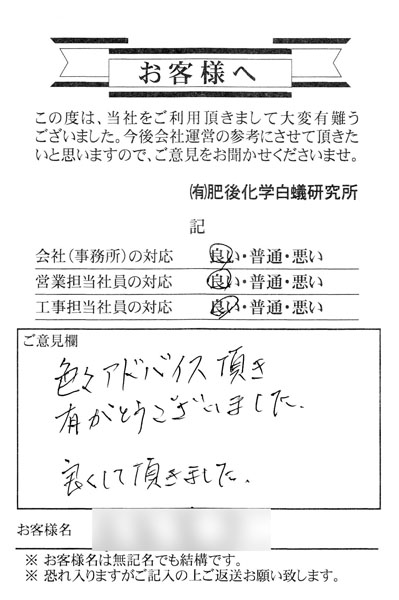 お客様へ
この度は、当社をご利用頂きまして大変有難う
ございました。今後会社運営の参考にさせて頂きた
いと思いますので、ご意見をお聞かせくださいませ。
㈲肥後化学白蟻研究所
記
会社(事務所)の対応 良い・普通・悪い
営業担当社員の対応 良い・普通・悪い
工事担当社員の対応 良い・普通・悪い
ご意見欄
色々アドバイス頂き
有がとうございました。
良くして頂きました。
お客様名
※ お客様名は無記名でも結構です。
※ 恐れ入りますがご記入の上ご返送お願い致します。